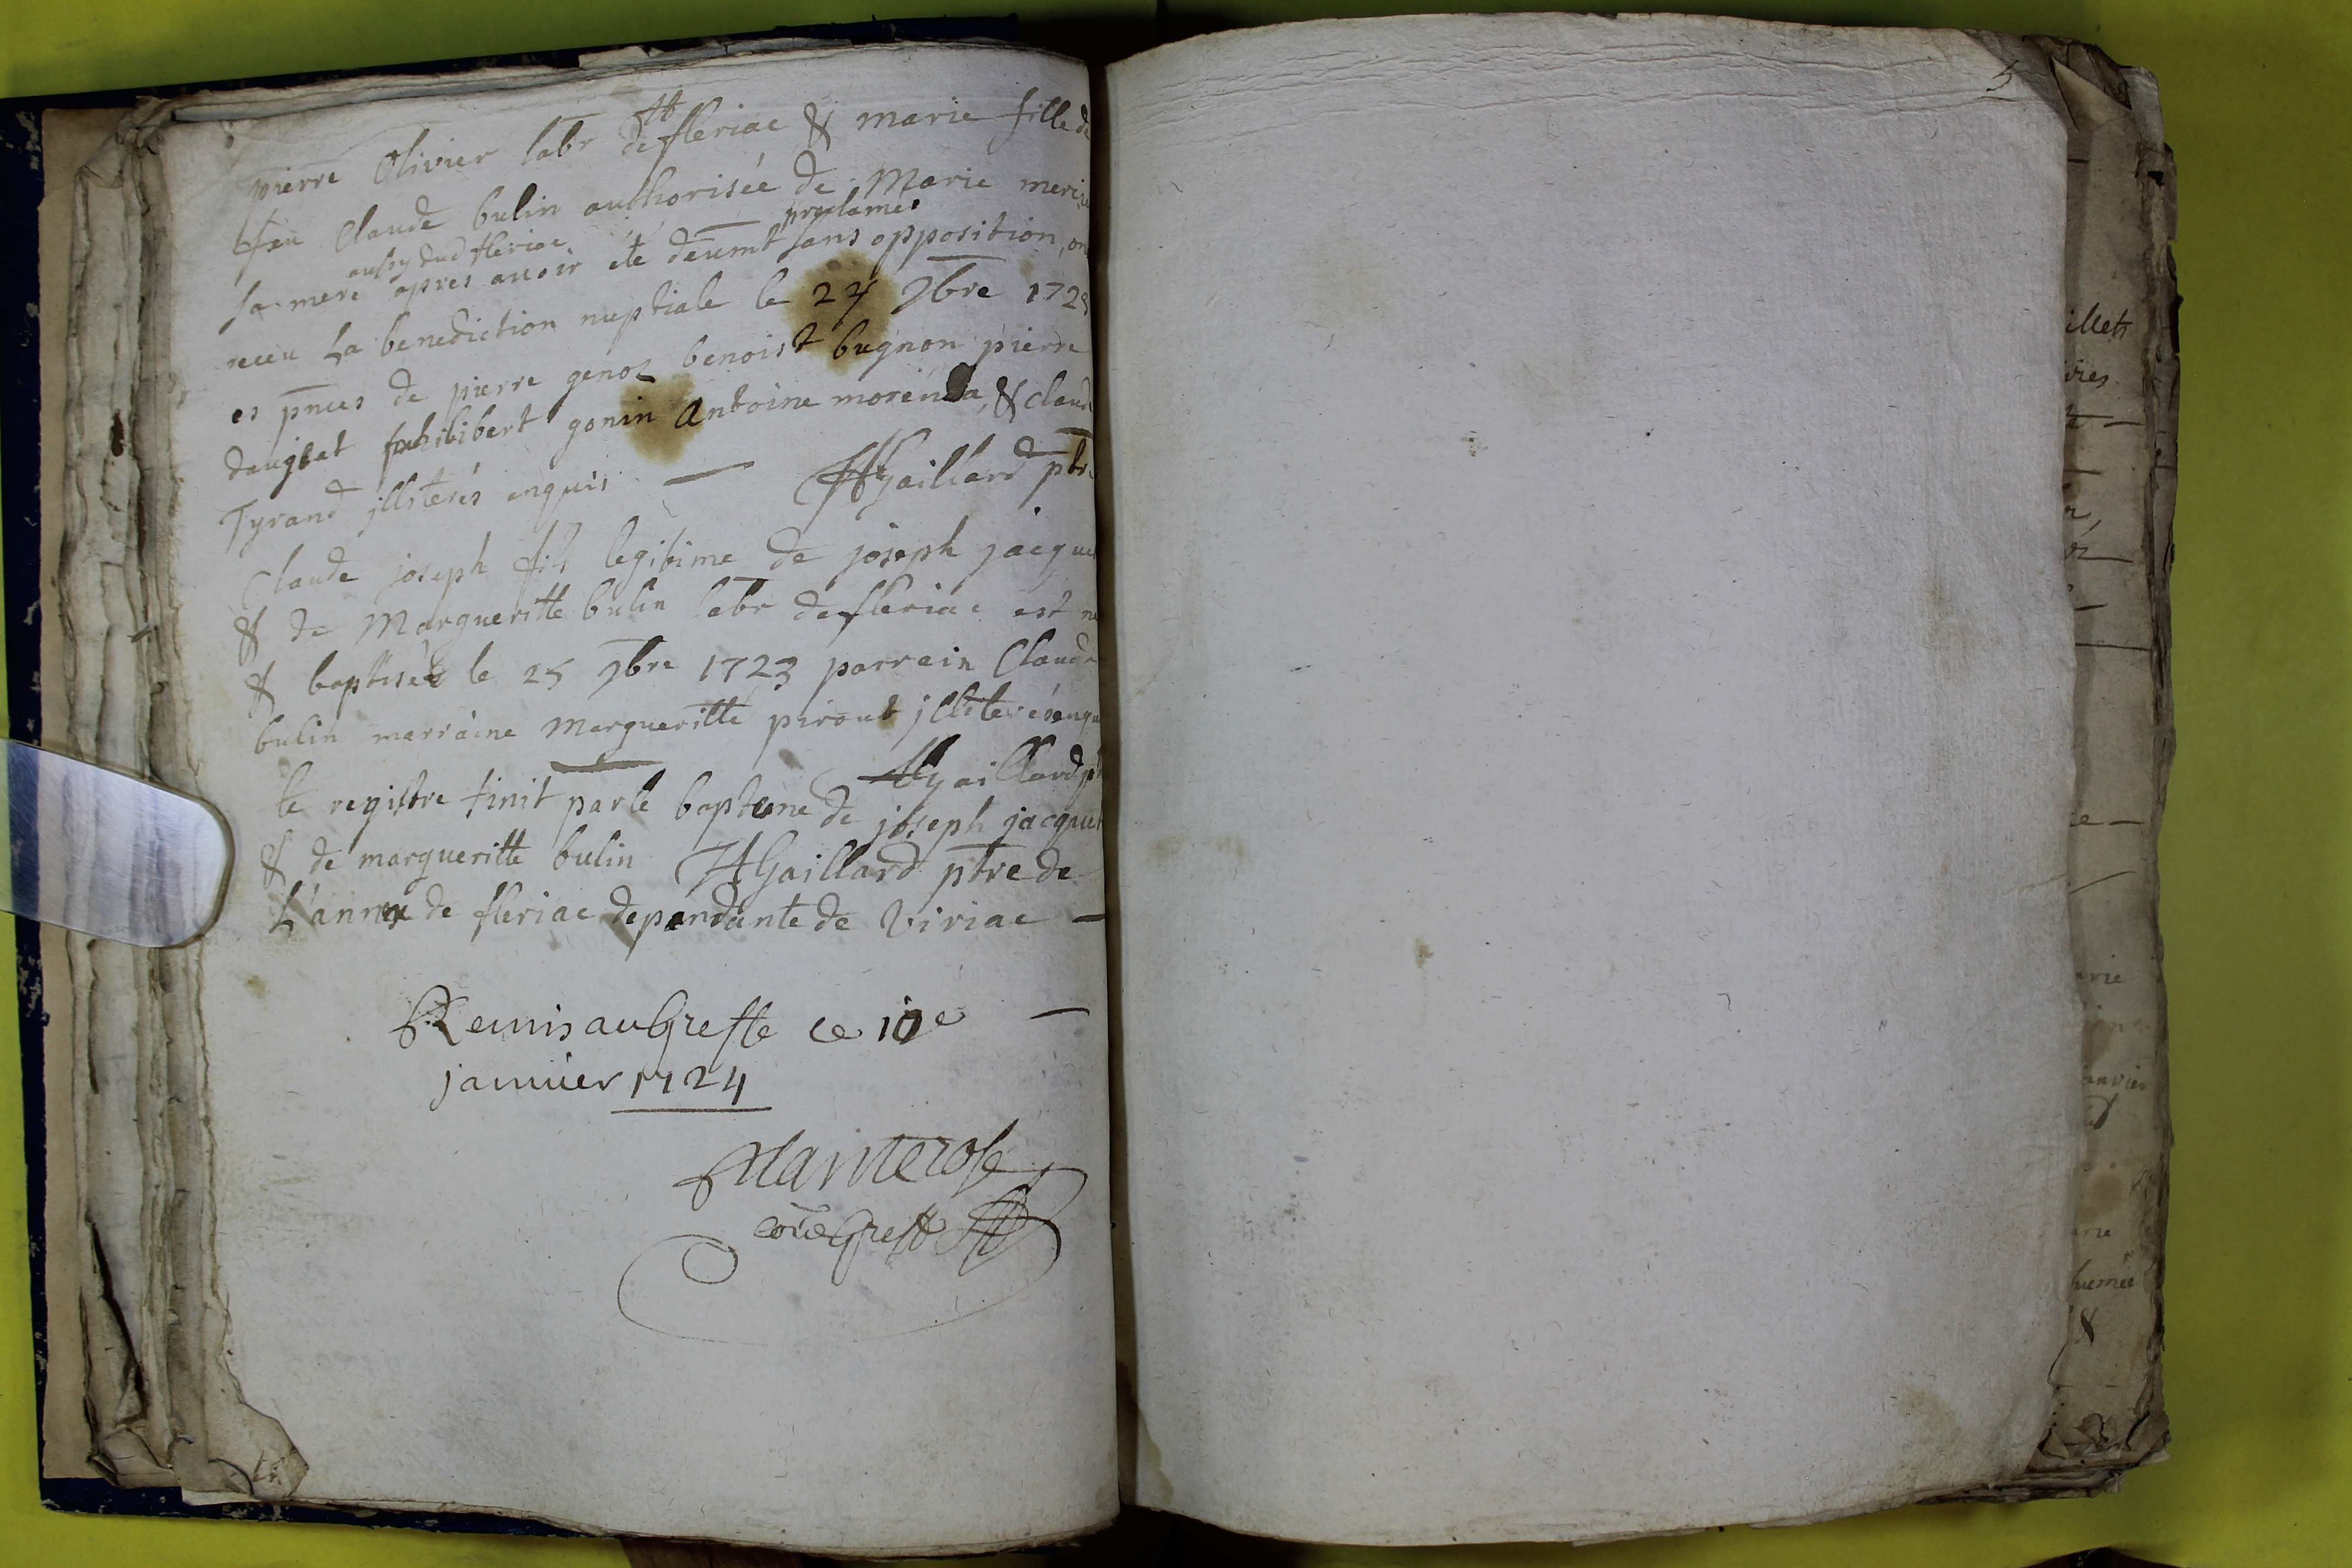 5
pierre Olivier labr de fleriac & marie fille de
feu Claude bulin authorisée de Marie
sa mere aussy dud fleriac apres avoir été deumt proclames sans opposition, on
receu La benediction nuptiale le 27 9bre 172
es pnces de pierre genot benoist bugnon pierre
philibert gonin Antoine & claud
Tyrand jlliterés enquis — Gaillard ptre
Claude joseph fils legitime de joseph jacquet
& de Margueritte bulin labr de fleriac est né
& baptisée le 25 9bre 1723 parrain Claude
bulin marraine Margueritte piroud jlliterés enqu
Gaillard
le registre finit par le bapteme de joseph jacquet
& de margueritte bulin Gaillard ptre de
L'annex de fleriac dependante de Viriac —
Remis au Greffe ce 10e —
januier 1724